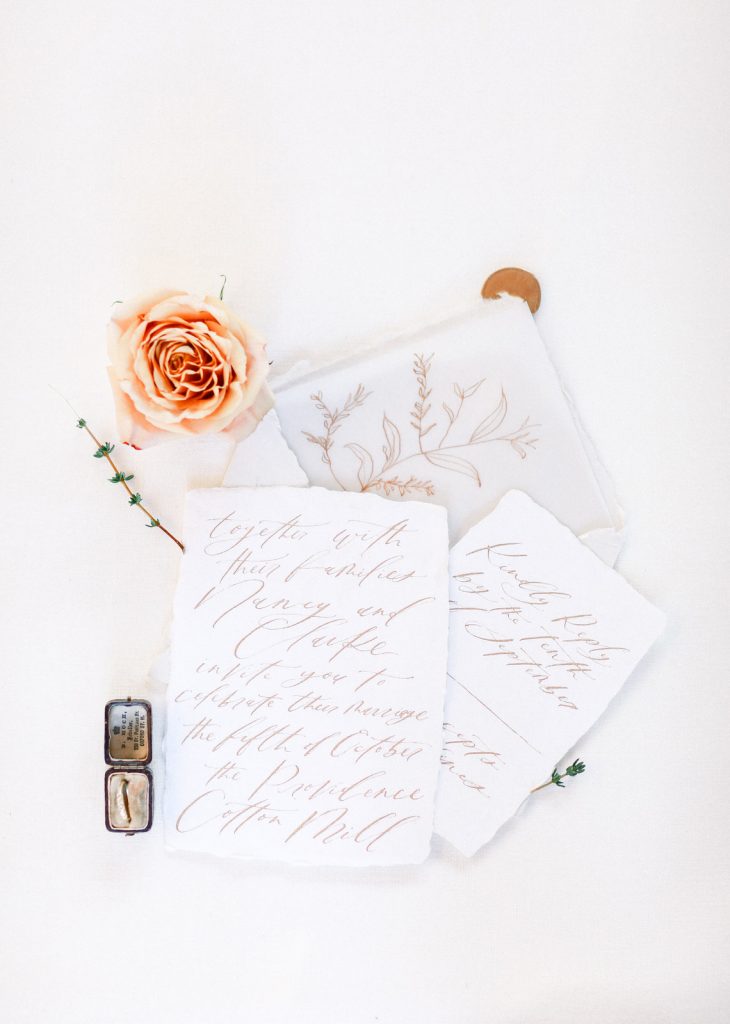 together with
their families
Nancy and
Clarke
invite you to
celebrate their marriage
the fifth of October
the Providence
Cotton Mill
Kindly Reply
by the Tenth
of September